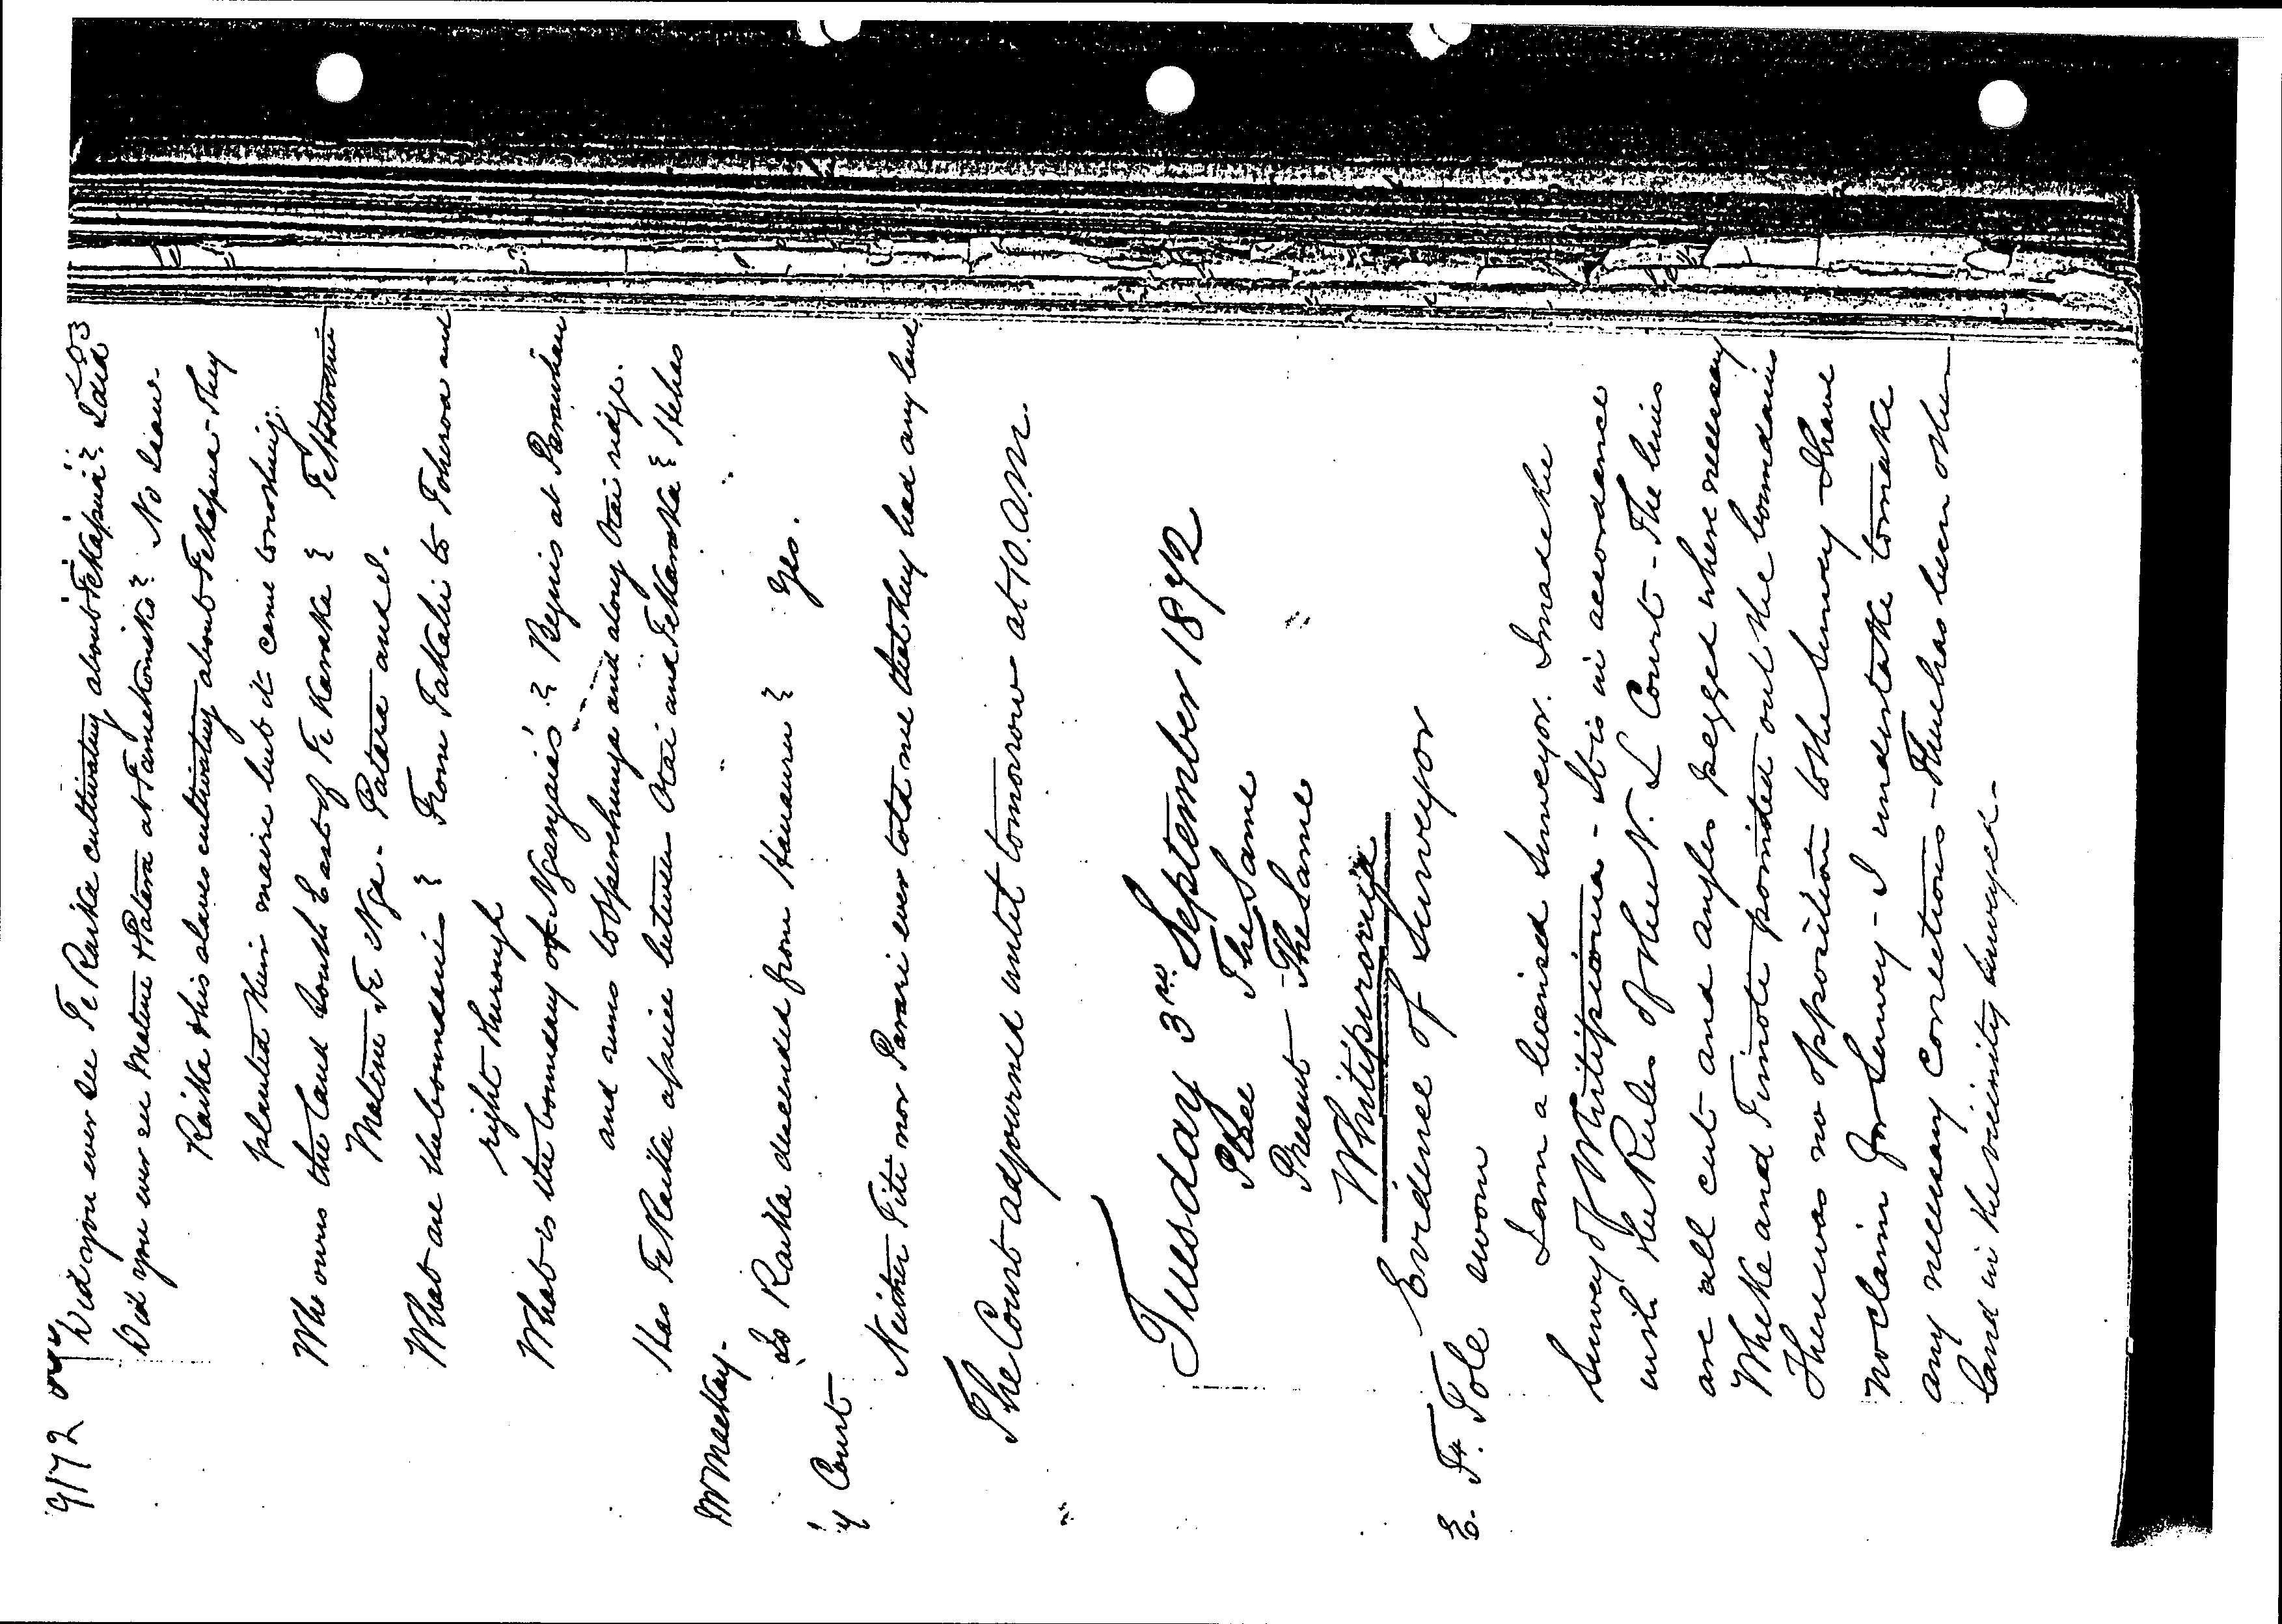 9/72
203
Did you ever see Te Raika cultivating about Te Kapua? I did
Did you ever see Matene & Patara at ? No I saw
Raika & his slaves cultivating about Te Kapua - They
planted their maize but it came to nothing.
Who owns the land South East of Te Karaka?
Matene Te Nga - Patara and I.
What are the boundaries? From Takahi to Toheroa and
right through
What is the boundary of Ngangaia's? Begins at
and runs to and along Otai ridge.
Has Te Raika a piece between Otai and Te Karaka? He has
Mr Mackay -
Is Raika descended from Hauauru? Yes.
By Court
Neither Titi nor Parari ever told me that they had any land
The Court adjourned until tomorrow at 10. A.M.
Tuesday 3rd September 1872
Place The Same
Present - The Same
Whitipirorua
Evidence of Surveyor
E. F. Tole sworn
I am a licensed Surveyor. I made the
Survey of Whitipirorua - It is in accordance
with the Rules of the N. L Court - The lines
are all cut and angles pegged where necessary
Wheke and Timoti pointed out the boundaries
There was no opposition to the Survey - I have
no claim for Survey - I undertake to make
any necessary corrections - There has been other
land in the vicinity surveyed -